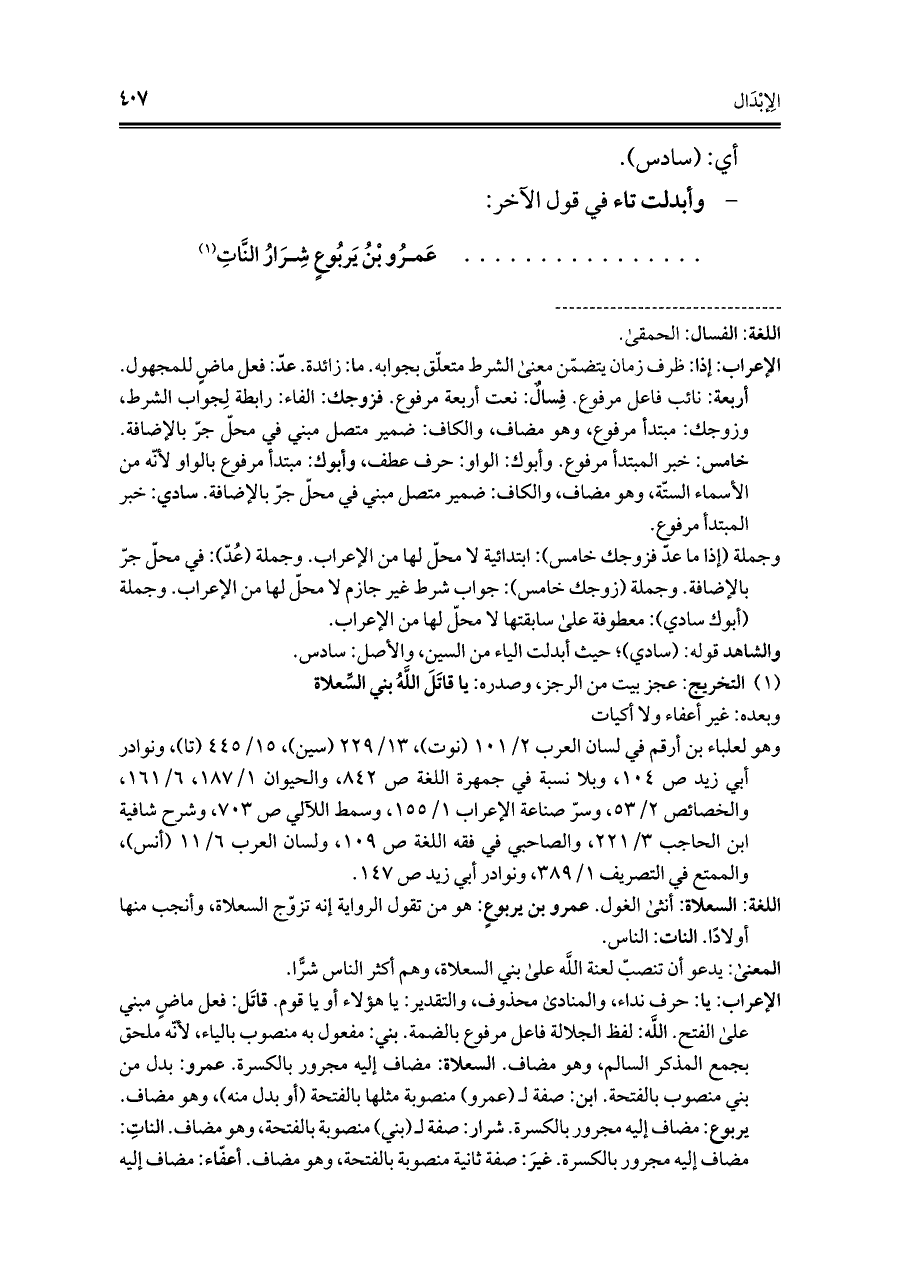 الإِبْدَال ٤٠٧
أي: (سادس).
- وأبدلت تاء في قول الآخر:
. . . . . . . . . . . . . . . . عَمـرُو بْنُ يَربُوعٍ شِـرَارُ النَّاتِ(١)
اللغة: الفسال: الحمقىٰ.
الإعراب: إذا: ظرف زمان يتضمّن معنىٰ الشرط متعلّق بجوابه. ما: زائدة. عدّ: فعل ماضٍ للمجهول.
أربعة: نائب فاعل مرفوع. فِسالٌ: نعت أربعة مرفوع. فزوجك: الفاء: رابطة لِجواب الشرط،
وزوجك: مبتدأ مرفوع، وهو مضاف، والكاف: ضمير متصل مبني في محلّ جرّ بالإضافة.
خامس: خبر المبتدأ مرفوع. وأبوك: الواو: حرف عطف، وأبوك: مبتدأ مرفوع بالواو لأنّه من
الأسماء الستّة، وهو مضاف، والكاف: ضمير متصل مبني في محلّ جرّ بالإضافة. سادي: خبر
المبتدأ مرفوع.
وجملة (إذا ما عدّ فزوجك خامس): ابتدائية لا محلّ لها من الإعراب. وجملة (عُدّ): في محلّ جرّ
بالإضافة. وجملة (زوجك خامس): جواب شرط غير جازم لا محلّ لها من الإعراب. وجملة
(أبوك سادي): معطوفة علىٰ سابقتها لا محلّ لها من الإعراب.
والشاهد قوله: (سادي)؛ حيث أبدلت الياء من السين، والأصل: سادس.
(١) التخريج: عجز بيت من الرجز، وصدره: يا قاتَلَ اللَّهُ بني السِّعلاة
وبعده: غير أعفاء ولا أكيات
وهو لعلباء بن أرقم في لسان العرب ٢/ ١٠١ (نوت)، ١٣/ ٢٢٩ (سين)، ١٥/ ٤٤٥ (تا)، ونوادر
أبي زيد ص ١٠٤، وبلا نسبة في جمهرة اللغة ص ٨٤٢، والحيوان ١/ ١٨٧، ٦/ ١٦١،
والخصائص ٢/ ٥٣، وسرّ صناعة الإعراب ١/ ١٥٥، وسمط اللآلي ص ٧٠٣، وشرح شافية
ابن الحاجب ٣/ ٢٢١، والصاحبي في فقه اللغة ص ١٠٩، ولسان العرب ٦/ ١١ (أنس)،
والممتع في التصريف ١/ ٣٨٩، ونوادر أبي زيد ص ١٤٧.
اللغة: السعلاة: أنثىٰ الغول. عمرو بن يربوعٍ: هو من تقول الرواية إنه تزوّج السعلاة، وأنجب منها
أولادًا. النات: الناس.
المعنىٰ: يدعو أن تنصبّ لعنة اللَّه علىٰ بني السعلاة، وهم أكثر الناس شرًّا.
الإعراب: يا: حرف نداء، والمنادىٰ محذوف، والتقدير: يا هؤلاء أو يا قوم. قاتَل: فعل ماضٍ مبني
علىٰ الفتح. اللَّه: لفظ الجلالة فاعل مرفوع بالضمة. بني: مفعول به منصوب بالياء، لأنّه ملحق
بجمع المذكر السالم، وهو مضاف. السعلاة: مضاف إليه مجرور بالكسرة. عمرو: بدل من
بني منصوب بالفتحة. ابن: صفة لـ (عمرو) منصوبة مثلها بالفتحة (أو بدل منه)، وهو مضاف.
يربوع: مضاف إليه مجرور بالكسرة. شرار: صفة لـ (بني) منصوبة بالفتحة، وهو مضاف. الناتِ:
مضاف إليه مجرور بالكسرة. غيرَ: صفة ثانية منصوبة بالفتحة، وهو مضاف. أعفّاء: مضاف إليه